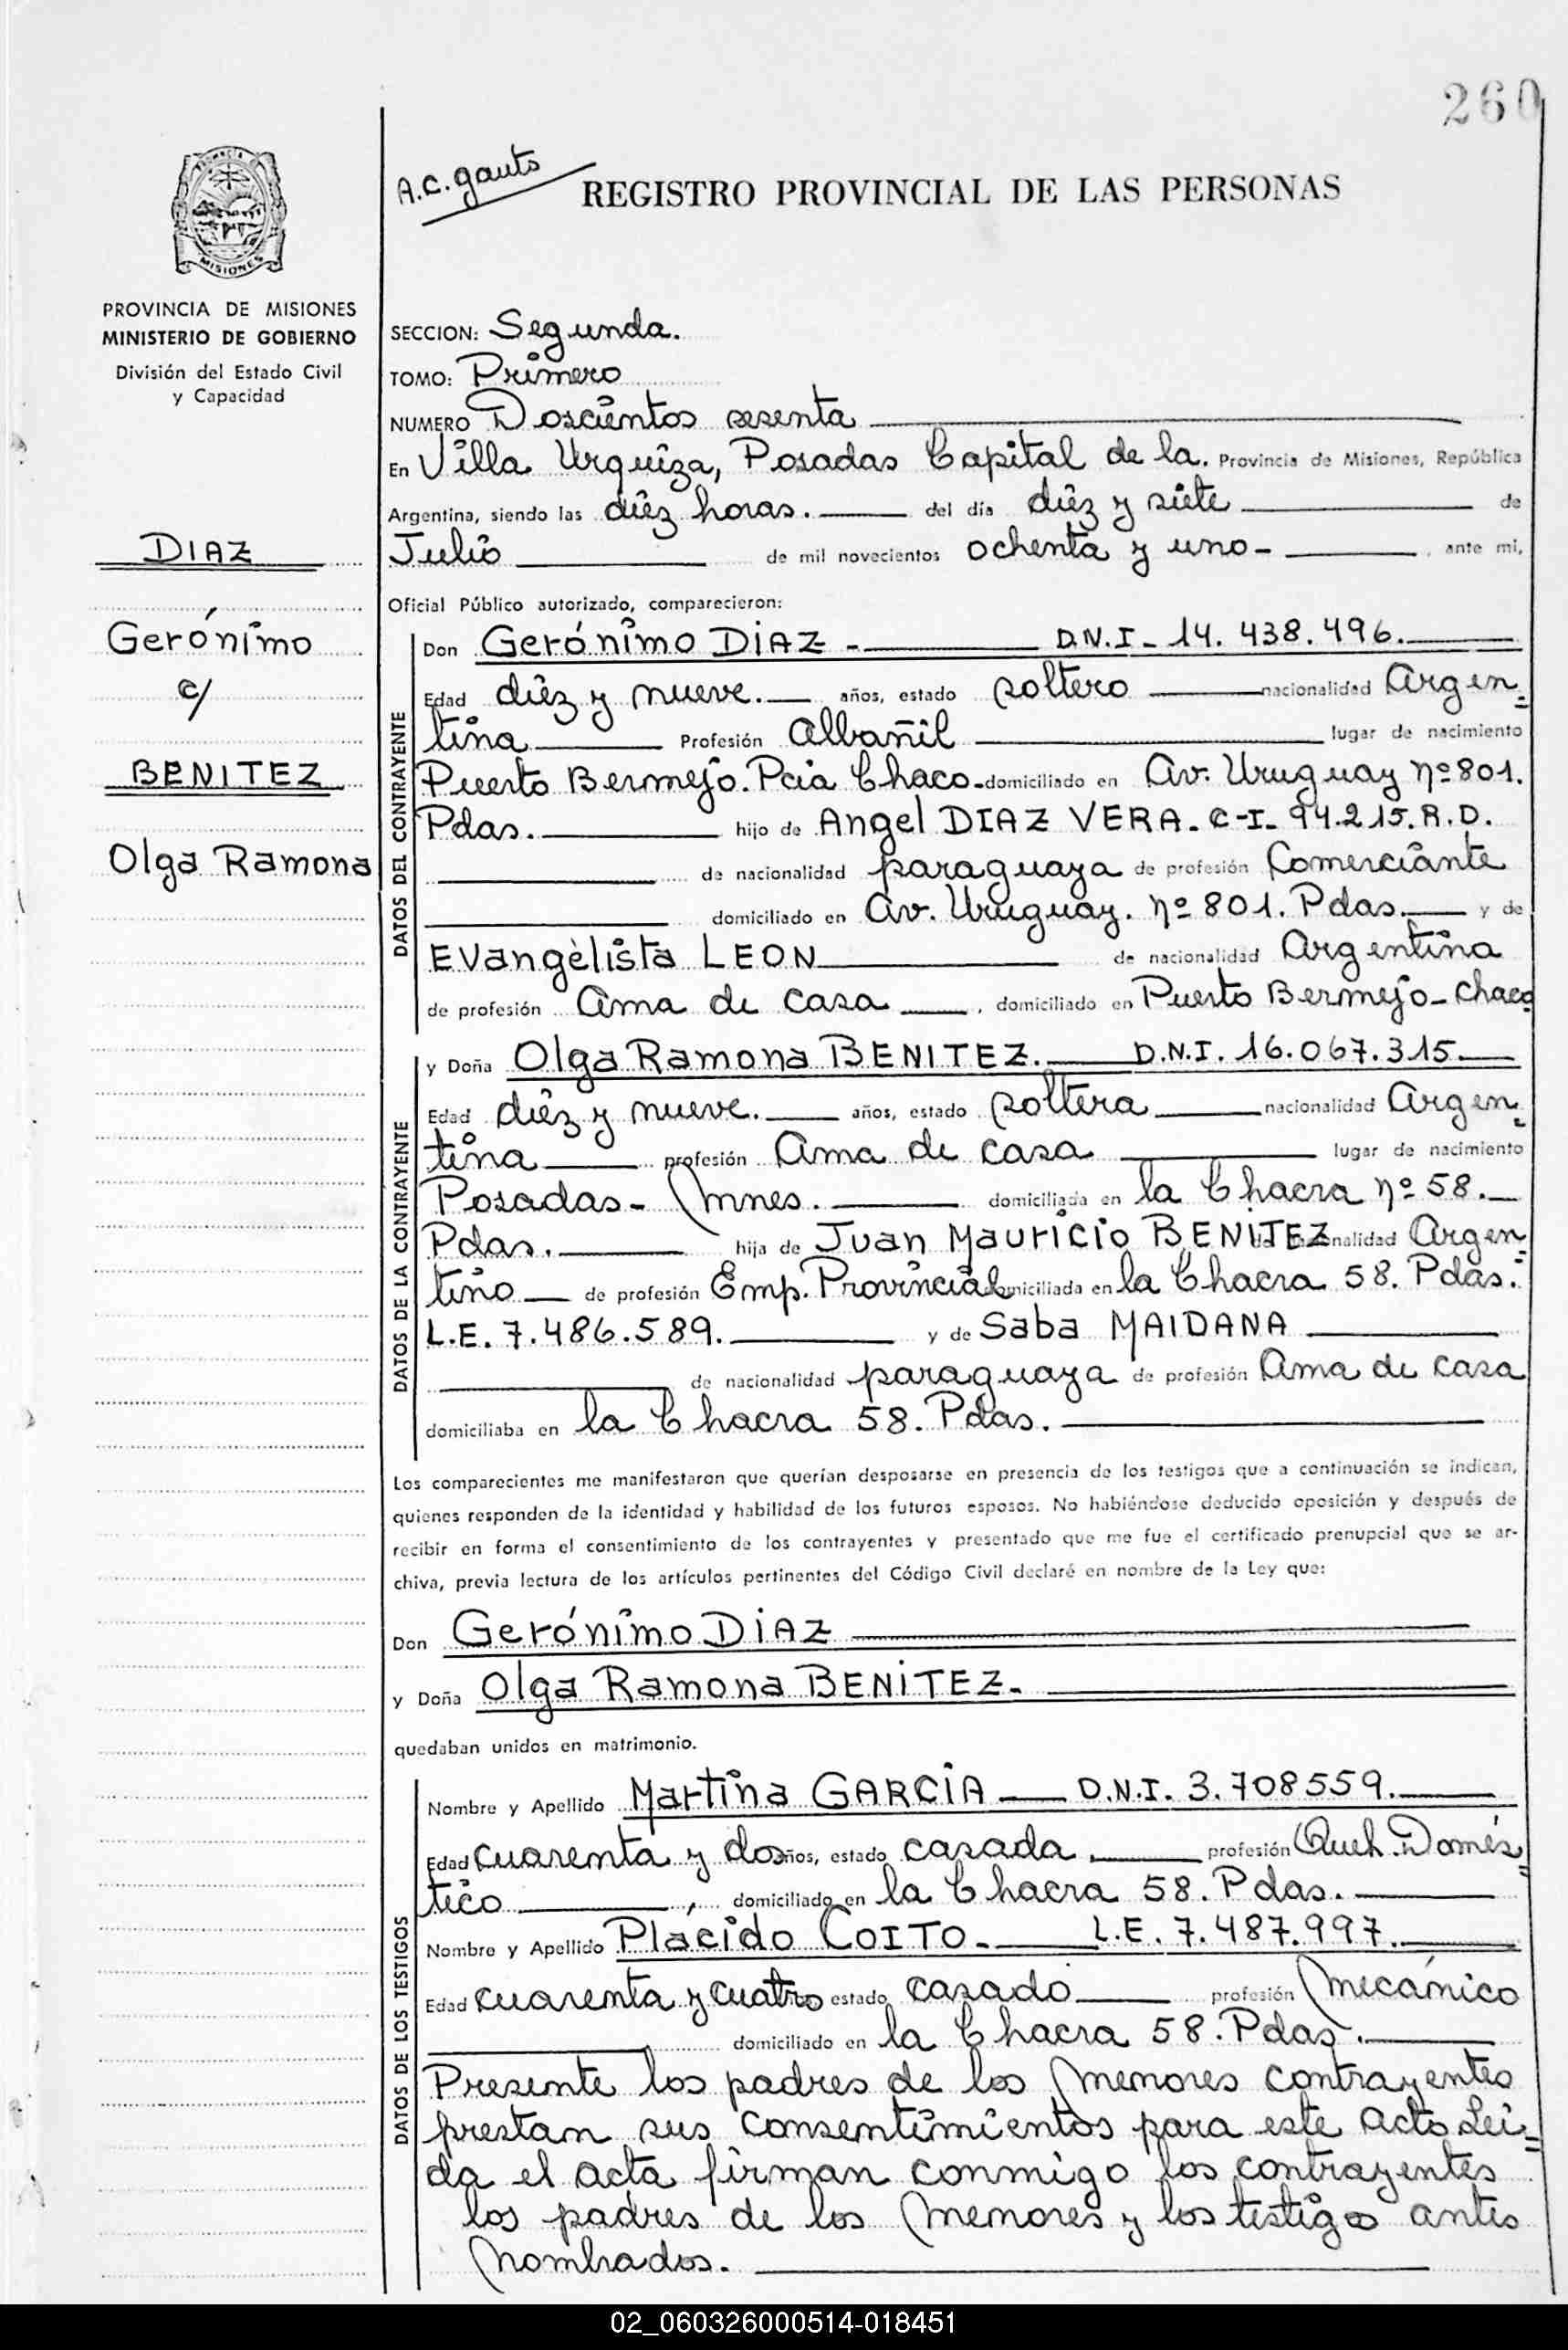 260
A.C. gauto
REGISTRO PROVINCIAL DE LAS PERSONAS
PROVINCIA
MISIONES
PROVINCIA DE MISIONES
MINISTERIO DE GOBIERNO
División del Estado Civil
y Capacidad
DIAZ
Gerónimo
c/
BENITEZ
Olga Ramona
SECCION: Segunda.
TOMO: Primero
NUMERO Doscientos sesenta
En Villa Urquiza, Posadas Capital de la. Provincia de Misiones, República
Argentina, siendo las diez horas. del día diez y siete de
Julio de mil novecientos ochenta y uno- , ante mi,
Oficial Público autorizado, comparecieron:
DATOS DEL CONTRAYENTE
Don Gerónimo DIAZ - D.N.I- 14. 438.496.
Edad diez y nueve. años, estado soltero nacionalidad Argen=
tina Profesión Albañil lugar de nacimiento
Puerto Bermejo. Pcia Chaco- domiciliado en Av. Uruguay nº 801.
Pdas. hijo de Angel DIAZ VERA. C-I- 94.215.R.D.
de nacionalidad paraguaya de profesión Comerciante
domiciliado en Av. Uruguay. nº 801. Pdas. y de
Evangèlista LEON de nacionalidad Argentina
de profesión Ama de casa , domiciliado en Puerto Bermejo- Chaco
DATOS DE LA CONTRAYENTE
y Doña Olga Ramona BENITEZ. D.N.I. 16.067.315
Edad diez y nueve. años, estado soltera nacionalidad Argen=
tina profesión Ama de casa lugar de nacimiento
Posadas- Mnes. domiciliada en la Chacra nº 58.
Pdas. hija de Juan Mauricio BENITEZ nacionalidad Argen=
tino de profesión Emp. Provincial domiciliada en la Chacra 58. Pdas.
L.E. 7.486.589. y de Saba MAIDANA
de nacionalidad paraguaya de profesión Ama de casa
domiciliaba en la Chacra 58. Pdas.
Los comparecientes me manifestaron que querían desposarse en presencia de los testigos que a continuación se indican,
quienes responden de la identidad y habilidad de los futuros esposos. No habiéndose deducido oposición y después de
recibir en forma el consentimiento de los contrayentes y presentado que me fue el certificado prenupcial que se ar-
chiva, previa lectura de los artículos pertinentes del Código Civil declaré en nombre de la Ley que:
Don Gerónimo DIAZ
y Doña Olga Ramona BENITEZ-
quedaban unidos en matrimonio.
DATOS DE LOS TESTIGOS
Nombre y Apellido Martina GARCIA D.N.I. 3.708559.
Edad cuarenta y dos años, estado casada profesión Queh. Domés=
tico , domiciliado en la Chacra 58. Pdas.
Nombre y Apellido Plácido COITO- L.E. 7.487.997.
Edad cuarenta y cuatro estado casado profesión Mecánico
domiciliado en la Chacra 58. Pdas.
Presente los padres de los menores contrayentes
prestan sus consentimientos para este acto. Lei=
da el acta firman conmigo los contrayentes
los padres de los menores y los testigos antes
nombrados.
02_060326000514-018451